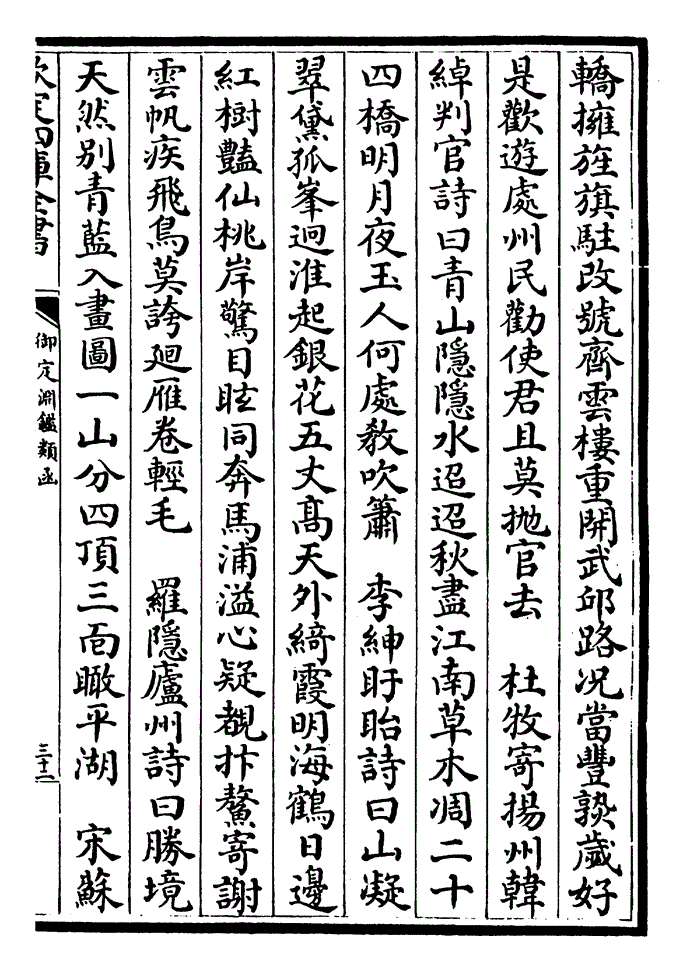 轎擁旌旗駐改號齊雲樓重開武邱路况當豐熟歲好
是歡遊處州民勸使君且莫抛官去　杜牧寄揚州韓
綽判官詩曰青山隱隱水迢迢秋盡江南草木凋二十
四橋明月夜玉人何處教吹簫　李紳盱眙詩曰山凝
翠黛孤峯迥淮起銀花五丈髙天外綺霞明海鶴日邊
紅樹豔仙桃岸驚目眩同奔馬浦溢心疑覩抃鰲寄謝
雲帆疾飛鳥莫誇廻雁卷輕毛　羅隱廬州詩曰勝境
天然别青藍入畫圖一山分四頂三面瞰平湖　宋蘇
欽定四庫全書
御定淵鑑類函
三十二